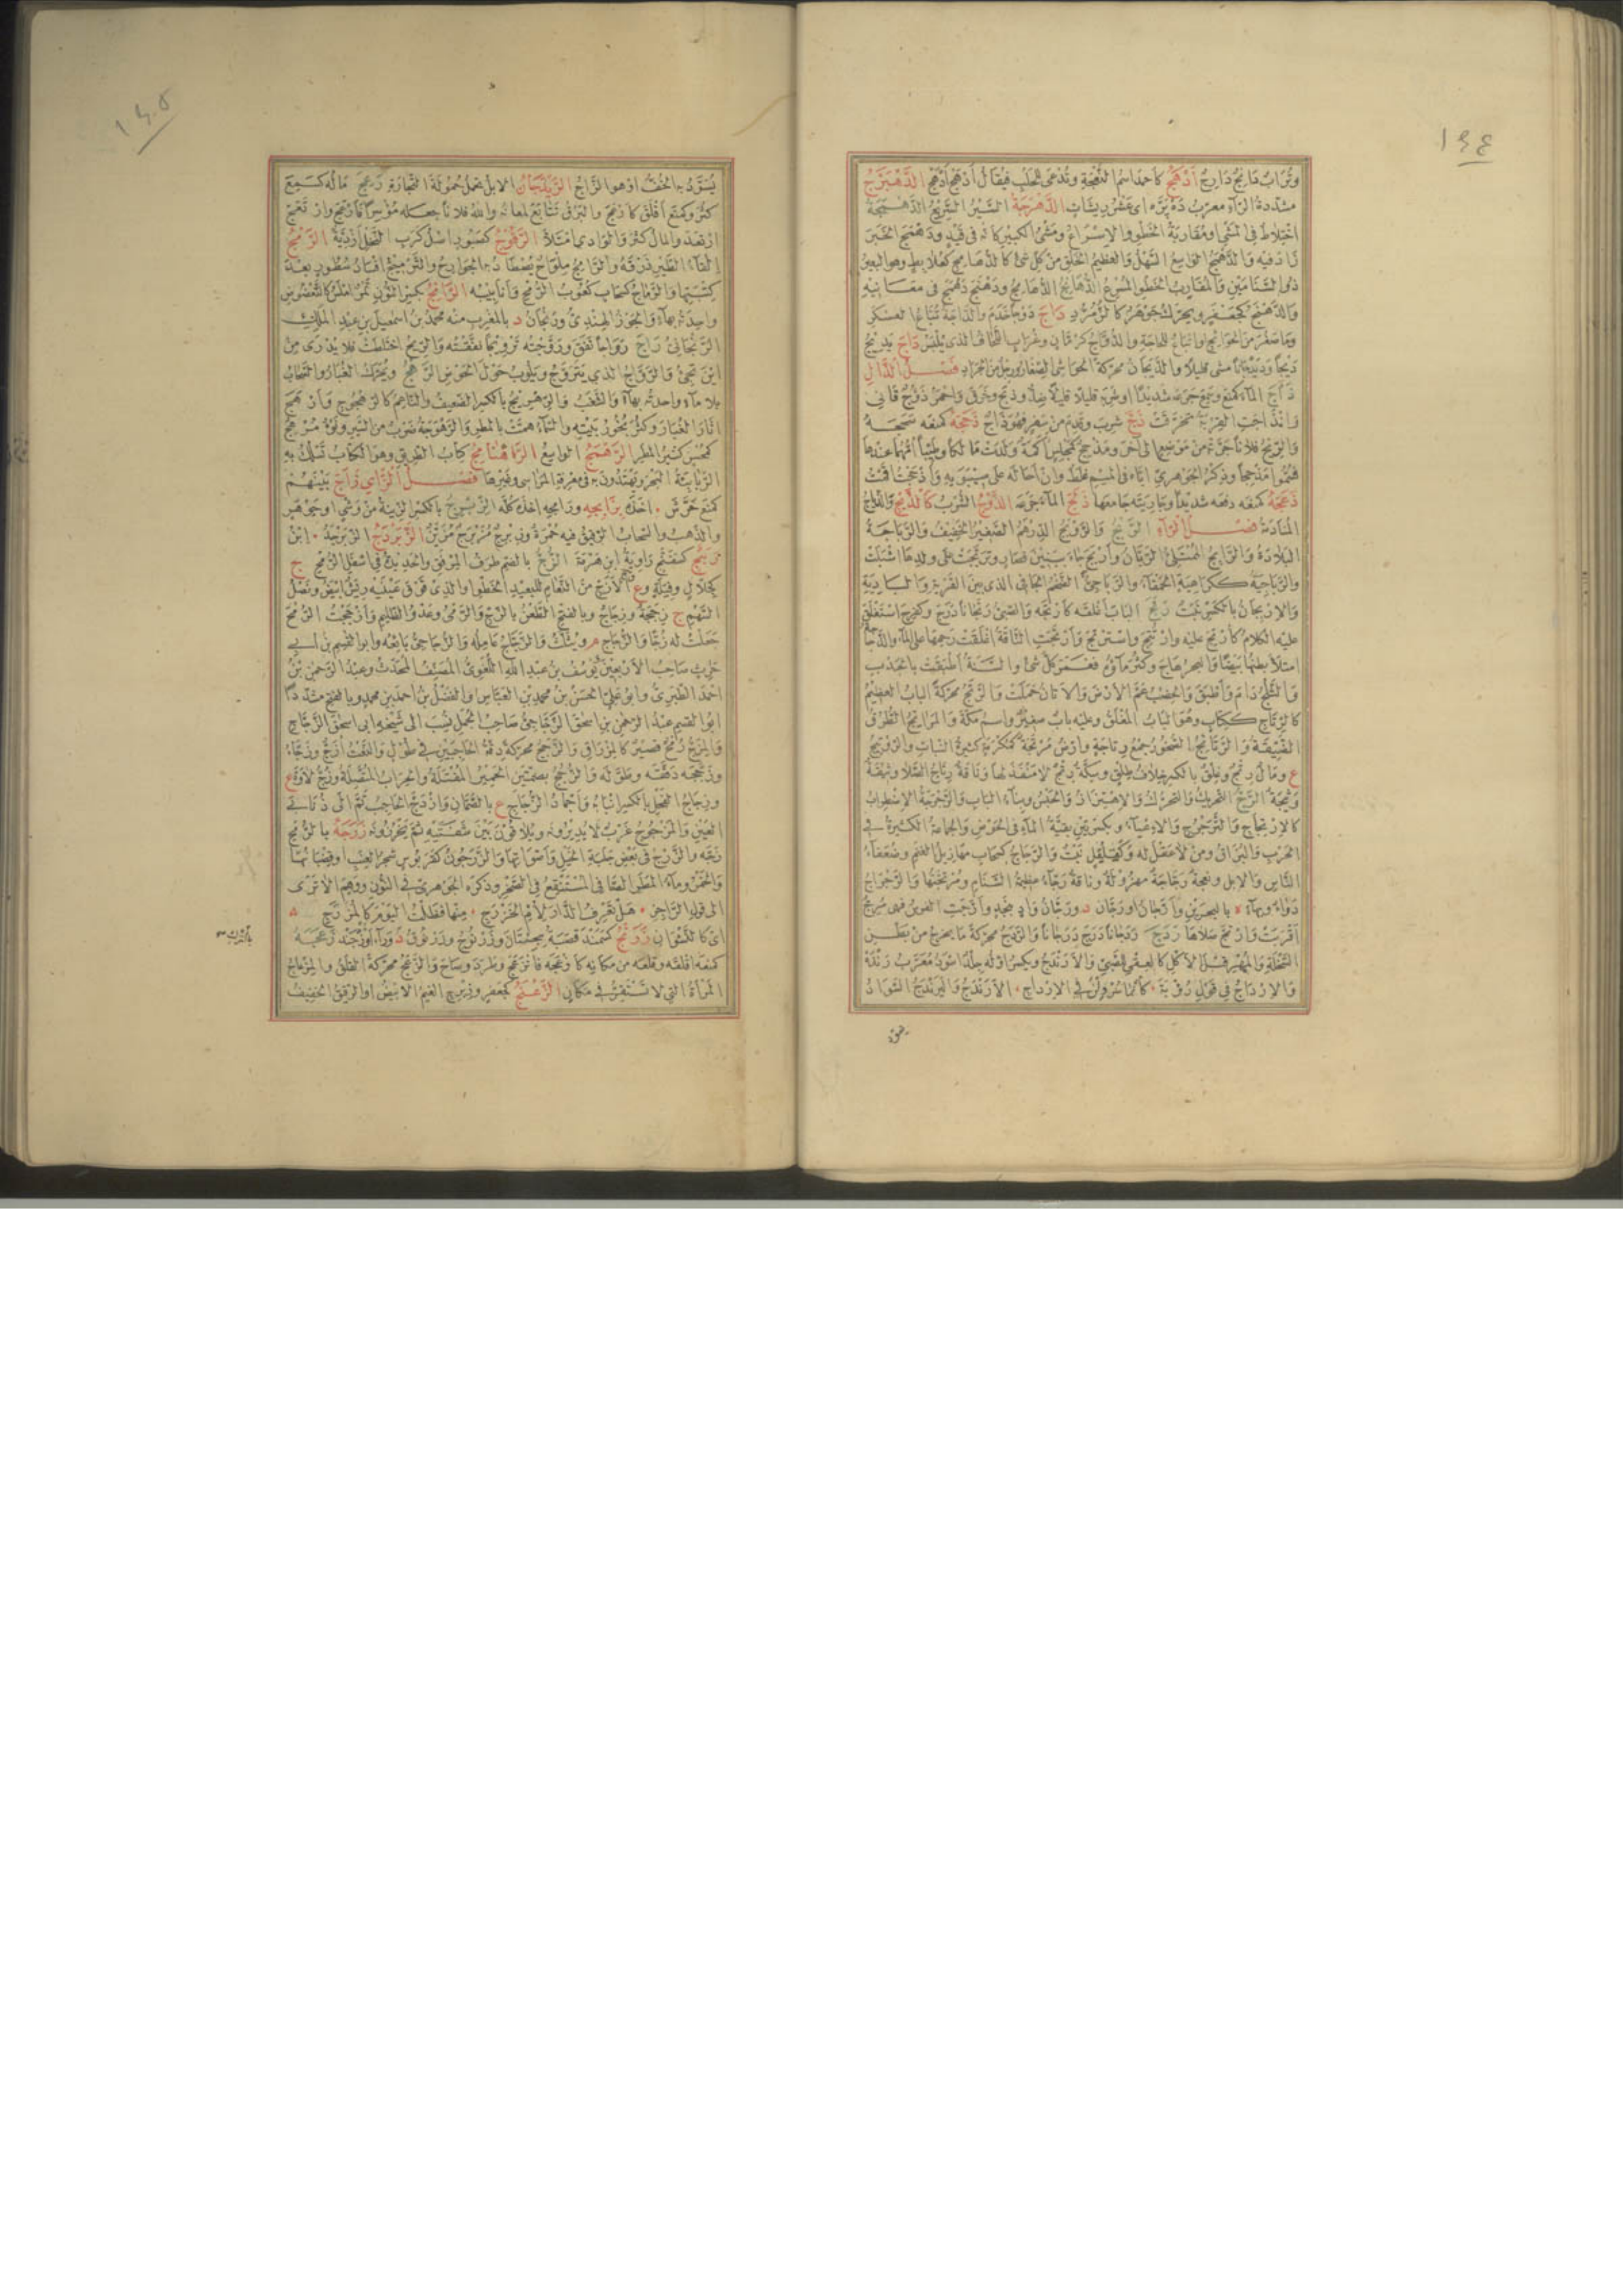 ١٤٤
وتراب دارج أدهج كأحمد اسم للنعجة وتدعى للحلب فيقال أدهج أدهج الدهبرج
مشددة الراء معرب ده بره اى عشر ريشات الدهرجة السير السريع الدهمجة
اختلاط فى المشى او مقاربة الخطو والاسراع ومشى الكبير كانه فى قيد ودهمج الخبر
زاد فيه والدهمج الواسع السهل والعظيم الخلق من كل شئ كالدهامج كعلابط وهو البعير
ذو السنامين والمقارب الخطو المسرع الدهانج الدهامج ودهنج دهمج فى معانيه
والدهنج كجعفر ويحرك جوهر كالزمرد داج دوجا خدم والداجة تباع العسكر
وما صغر من الحوائج او اتباع للحاجة والدواج كرمان وغراب اللحاف الذى يلبس داج يديج
ديجا وديجانا مشى قليلا والديجان محركة الحواشى الصغار ورجل من الجراد فصل الذال
ذأج الماء كمنع وسمع جرعه شديدا او شربه قليلا قليلا ضد وذبح وخرق واحمر ذؤوج قانى
وانذأجت القربة تخرقت ذج شرب وقدم من سفر فهو ذاج ذحجه كمنعه سحجه
والريح فلانا جرته من موضع الى آخر ومذحج كمجلس اكمة ولدت مالكا وطيئا امهما عندها
فسموا مذحجا وذكر الجوهرى اياه فى الميم غلط وان احاله على سيبويه وأذحجت اقامت
ذعجه كمنعه دفعه شديدا وجاريته جامعها ذلج الماء جرعه الذوج الشرب كالذيج والذياج
المنادمة فصل الراء الربج والروبج الدرهم الصغير الخفيف والرباجة
البلادة والرابج الممتلئ الريان وأربج جاء ببنين قصار وتربجت على ولدها اشبلت
والرباجية ككراهية الحمقاء والرباجى الضخم الجافى الذى بين القرية والبادية
والاربجان بالكسر نبت رتج الباب اغلقه كأرتجه والصبى رتجانا درج وكفرح استغلق
عليه الكلام كأرتج عليه وارتتج واسترتج وأرتجت الناقة اغلقت رحمها على الماء والدجاجة
امتلأ بطنها بيضا والبحر هاج وكثر ماؤه فغمر كل شئ والسنة اطبقت بالجدب
والثلج دام وأطبق والخصب عم الارض والاتان حملت والرتج محركة الباب العظيم
كالرتاج ككتاب وهو الباب المغلق وعليه باب صغير واسم مكة والمراتج الطرق
الضيقة والرتائج الصخور جمع رتاجة وارض مرتجة كمكرمة كثيرة النبات والرويتج
ع ومال رتج وغلق بالكسر خلاف طلق وسكة رتج لا منفذ لها وناقة رتاج الصلا وثيقة
وثيجة الرج التحريك والتحرك والاهتزاز والحبس وبناء الباب والرجرجة الاضطراب
كالارتجاج والترجرج والاعياء وبكسرتين بقية الماء فى الحوض والجماعة الكثيرة فى
الحرب والبزاق ومن لا عقل له وكفلفل نبت والرجاج كسحاب مهازيل الغنم وضعفاء
الناس والابل ونعجة رجاجة مهزولة وناقة رجاء عظيمة السنام ومرتجتها والرجراج
دواء وبهاء ة بالبحرين وأرجان او رجان د ورجان واد بنجد وأرجت الفرس فهى مرج
اقربت وارتج صلاها ردج ردجانا درج درجانا والردج محركة ما يخرج من بطن
السخلة والمهر قبل الاكل كالعقى للصبى والارندج وبكسر اوله جلد اسود معرب رنده
والارداج فى قول رؤبة كأنما سرولن فى الارداج الارندج واليرندج السواد
يسود
١٤٥
يسود به الخف او هو الزاج الريذجان الابل تحمل حمولة التجارة رعج ماله كسمع
كثر وكمنع اقلق كأرعج والبرق تتابع لمعانه والله فلانا جعله موسرا فأرعج وارتعج
ارتعد والمال كثر والوادى امتلأ الرفوج كصبور اصل كرب النخل ازدية الرمج
القاء الطير ذرقه والرامج ملواح يصطاد به الجوارح والترميج افساد سطور بعد
كتبتها والرماج كسحاب كعوب الرمح وأنابيبه الرانج بكسر النون تمر املس كالتعضوض
واحدته بهاء والجوز الهندى ورنجان د بالمغرب منه محمد بن اسمعيل بن عبد الملك
الرنجانى راج رواجا نفق وروجته ترويجا نفقته والريح اختلطت فلا يدرى من
اين تجئ والرواج الذى يتروج ويلوب حول الحوض الرهج ويحرك الغبار والسحاب
بلا ماء واحدته بهاء والشغب والرهجيج بالكسر الضعيف والناعم كالرهجوج وأرهج
اثار الغبار وكثر بخور بيته والسماء همت بالمطر والرهوجة ضرب من السير ونوء مرهج
كمحسن كثير المطر الرهمج الواسع الراهنامج كتاب الطريق وهو الكتاب تسلك به
الربابنة البحر ويهتدون به فى معرفة المراسى وغيرها فصل الزاى زأج بينهم
كمنع حرش اخذه بزأبجه وزأمجه اخذه كله الزبرج بالكسر الزينة من وشى او جوهر
والذهب والسحاب الرقيق فيه حمرة وزبرج مزبرج مزين الزبردج الزبرجد ابن
زبنج كسفنج راوية ابن هرمة الزج بالضم طرف المرفق والحديدة فى اسفل الرمح ج
كجلال وفيلة وع والازج من النعام للبعيد الخطو او الذى فوق عينيه ريش ابيض ونصل
السهم ج زججة وزجاج وبالفتح الطعن بالزج والرمى وعدو الظليم وأزججت الرمح
جعلت له زجا والزجاج م ويثلث والزجاج عامله والزجاجى بائعه وابو القسيم بن ابى
حرب صاحب الاربعين يوسف بن عبد الله اللغوى المصنف المحدث وعبد الرحمن بن
احمد الطبرى وابو على الحسن بن محمد بن العباس والفضل بن احمد بن محمد وبالفتح مشددا
ابو القسيم عبد الرحمن بن اسحق الزجاجى صاحب الجمل نسب الى شيخه ابى اسحق الزجاج
والمزج رمح قصير كالمزراق والزجج محركة دقة الحاجبين فى طول والنعت ازج وزجاء
وزججه دققه وطوله والزجج بضمتين الحمير المقتتلة والحراب المنصلة وزج لاوة ع
وزجاج الفحل بالكسر انيابه وأجماد الزجاج ع بالصمان وازدج الحاجب تم الى ذنابى
العين والمزجوج غرب لا يديرونه ويلاقون بين شفتيه ثم يخرزونه زرجه بالرمح
زجه والزرج فى بعض جلبة الخيل وأصواتها والزرجون كقربوس شجر العنب او قضبانها
والخمر وماء المطر الصافى المستنقع فى الصخر وذكره الجوهرى فى النون ووهم الا ترى
الى قول الراجز هل تعرف الدار لأم الخزرج منها فظلت اليوم كالمزرج
اى كالنشوان زرنج كسمند قصبة بسجستان وزرنوج وزرنوق د وراء اوزجند زعجه
بالترك
كمنعه اقلقه وقلعه من مكانه كأزعجه فانزعج وطرد وصاح والزعج محركة القلق والمزعاج
المرأة التى لا تستقر فى مكان الزعبج كجعفر وزبرج الغيم الابيض او الرقيق الخفيف